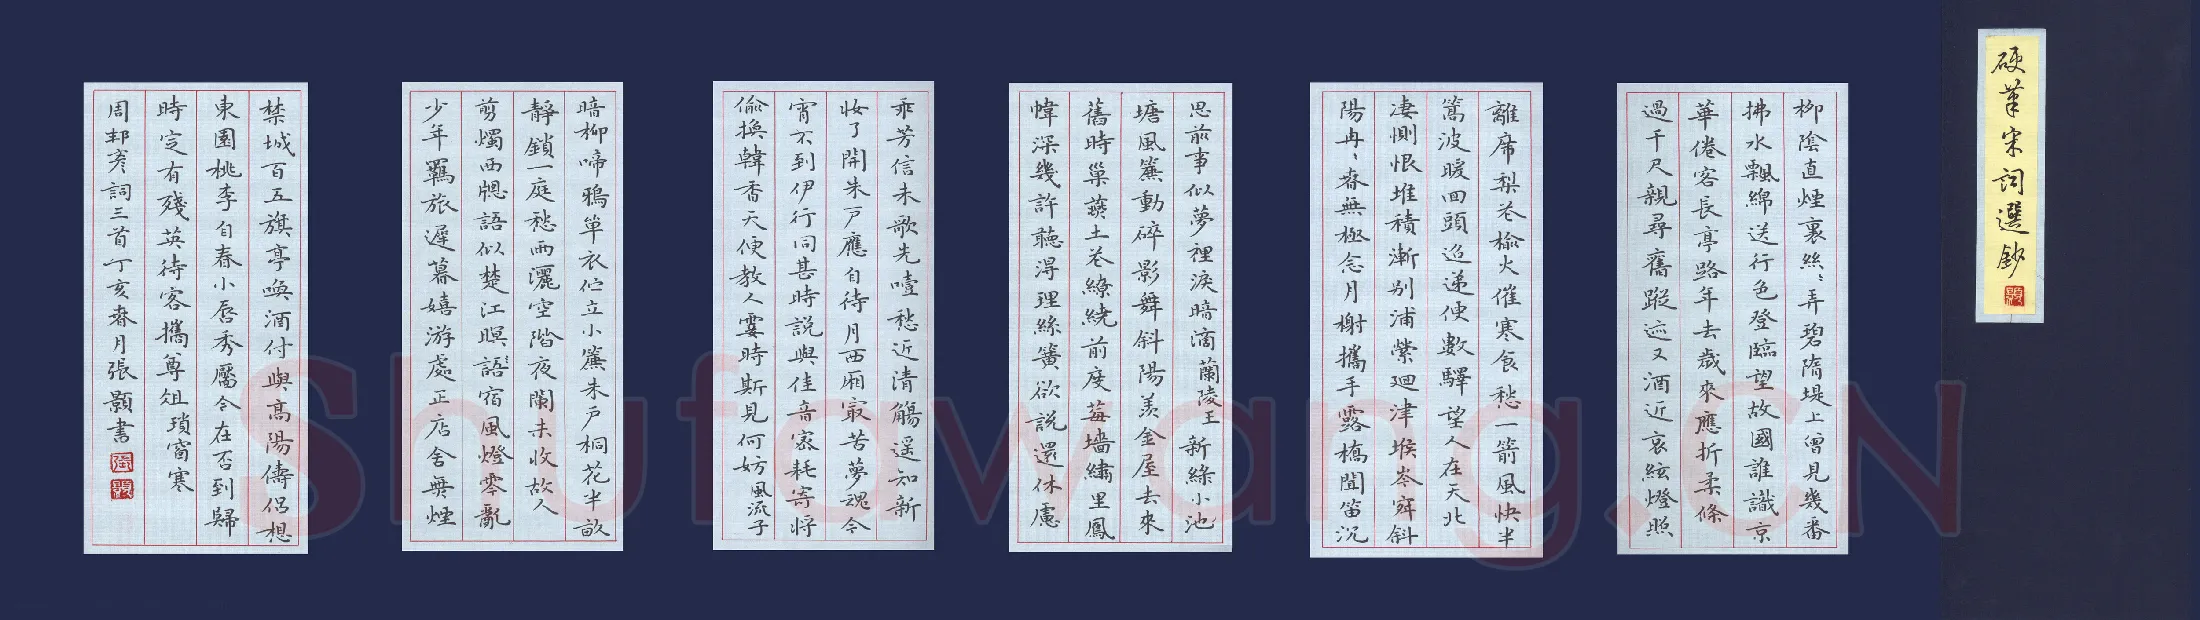 硬筆宋詞選鈔
柳陰直煙裏絲〻弄碧隋堤上曾見幾番
拂水飄綿送行色登臨望故國誰識京
華倦客長亭路年去歲來應折柔條
過千尺親尋舊蹤迹又酒近哀絃燈照
離席梨花榆火催寒食愁一箭風快半
篙波暖回頭迢递便數驛望人在天北
凄惻恨堆積漸别浦縈廻津堠岑寂斜
陽冉〻春無極念月榭攜手露橋聞笛沉
思前事似夢裡淚暗滴蘭陵王新綠小池
塘風簾動碎影舞斜陽羨金屋去來
舊時巢燕土花繚繞前度莓墻繡里鳳
幃深幾許聽得理絲簧欲說還休慮
乖芳信未歌先噎愁近清觴遥知新
妝了開朱戸應自待月西廂寂苦夢魂今
宵不到伊行问甚時説與佳音密耗寄将
偷換韓香天便教人霎時斯見何妨風流子
暗柳啼鴉单衣伫立小簾朱戸桐花半畝
靜鎖一庭愁雨灑空階夜闌未收故人
剪燭西牕語似楚江暝語宿風燈零亂
少年羈旅遲暮嬉游處正店舍無煙
禁城百五旗亭喚酒付與高陽儔侣想
東園桃李自春小唇秀靨今在否到歸
時定有殘英待客攜尊俎瑣窗寒
周邦彦詞三首丁亥春月張顥書
Shufawang.CN